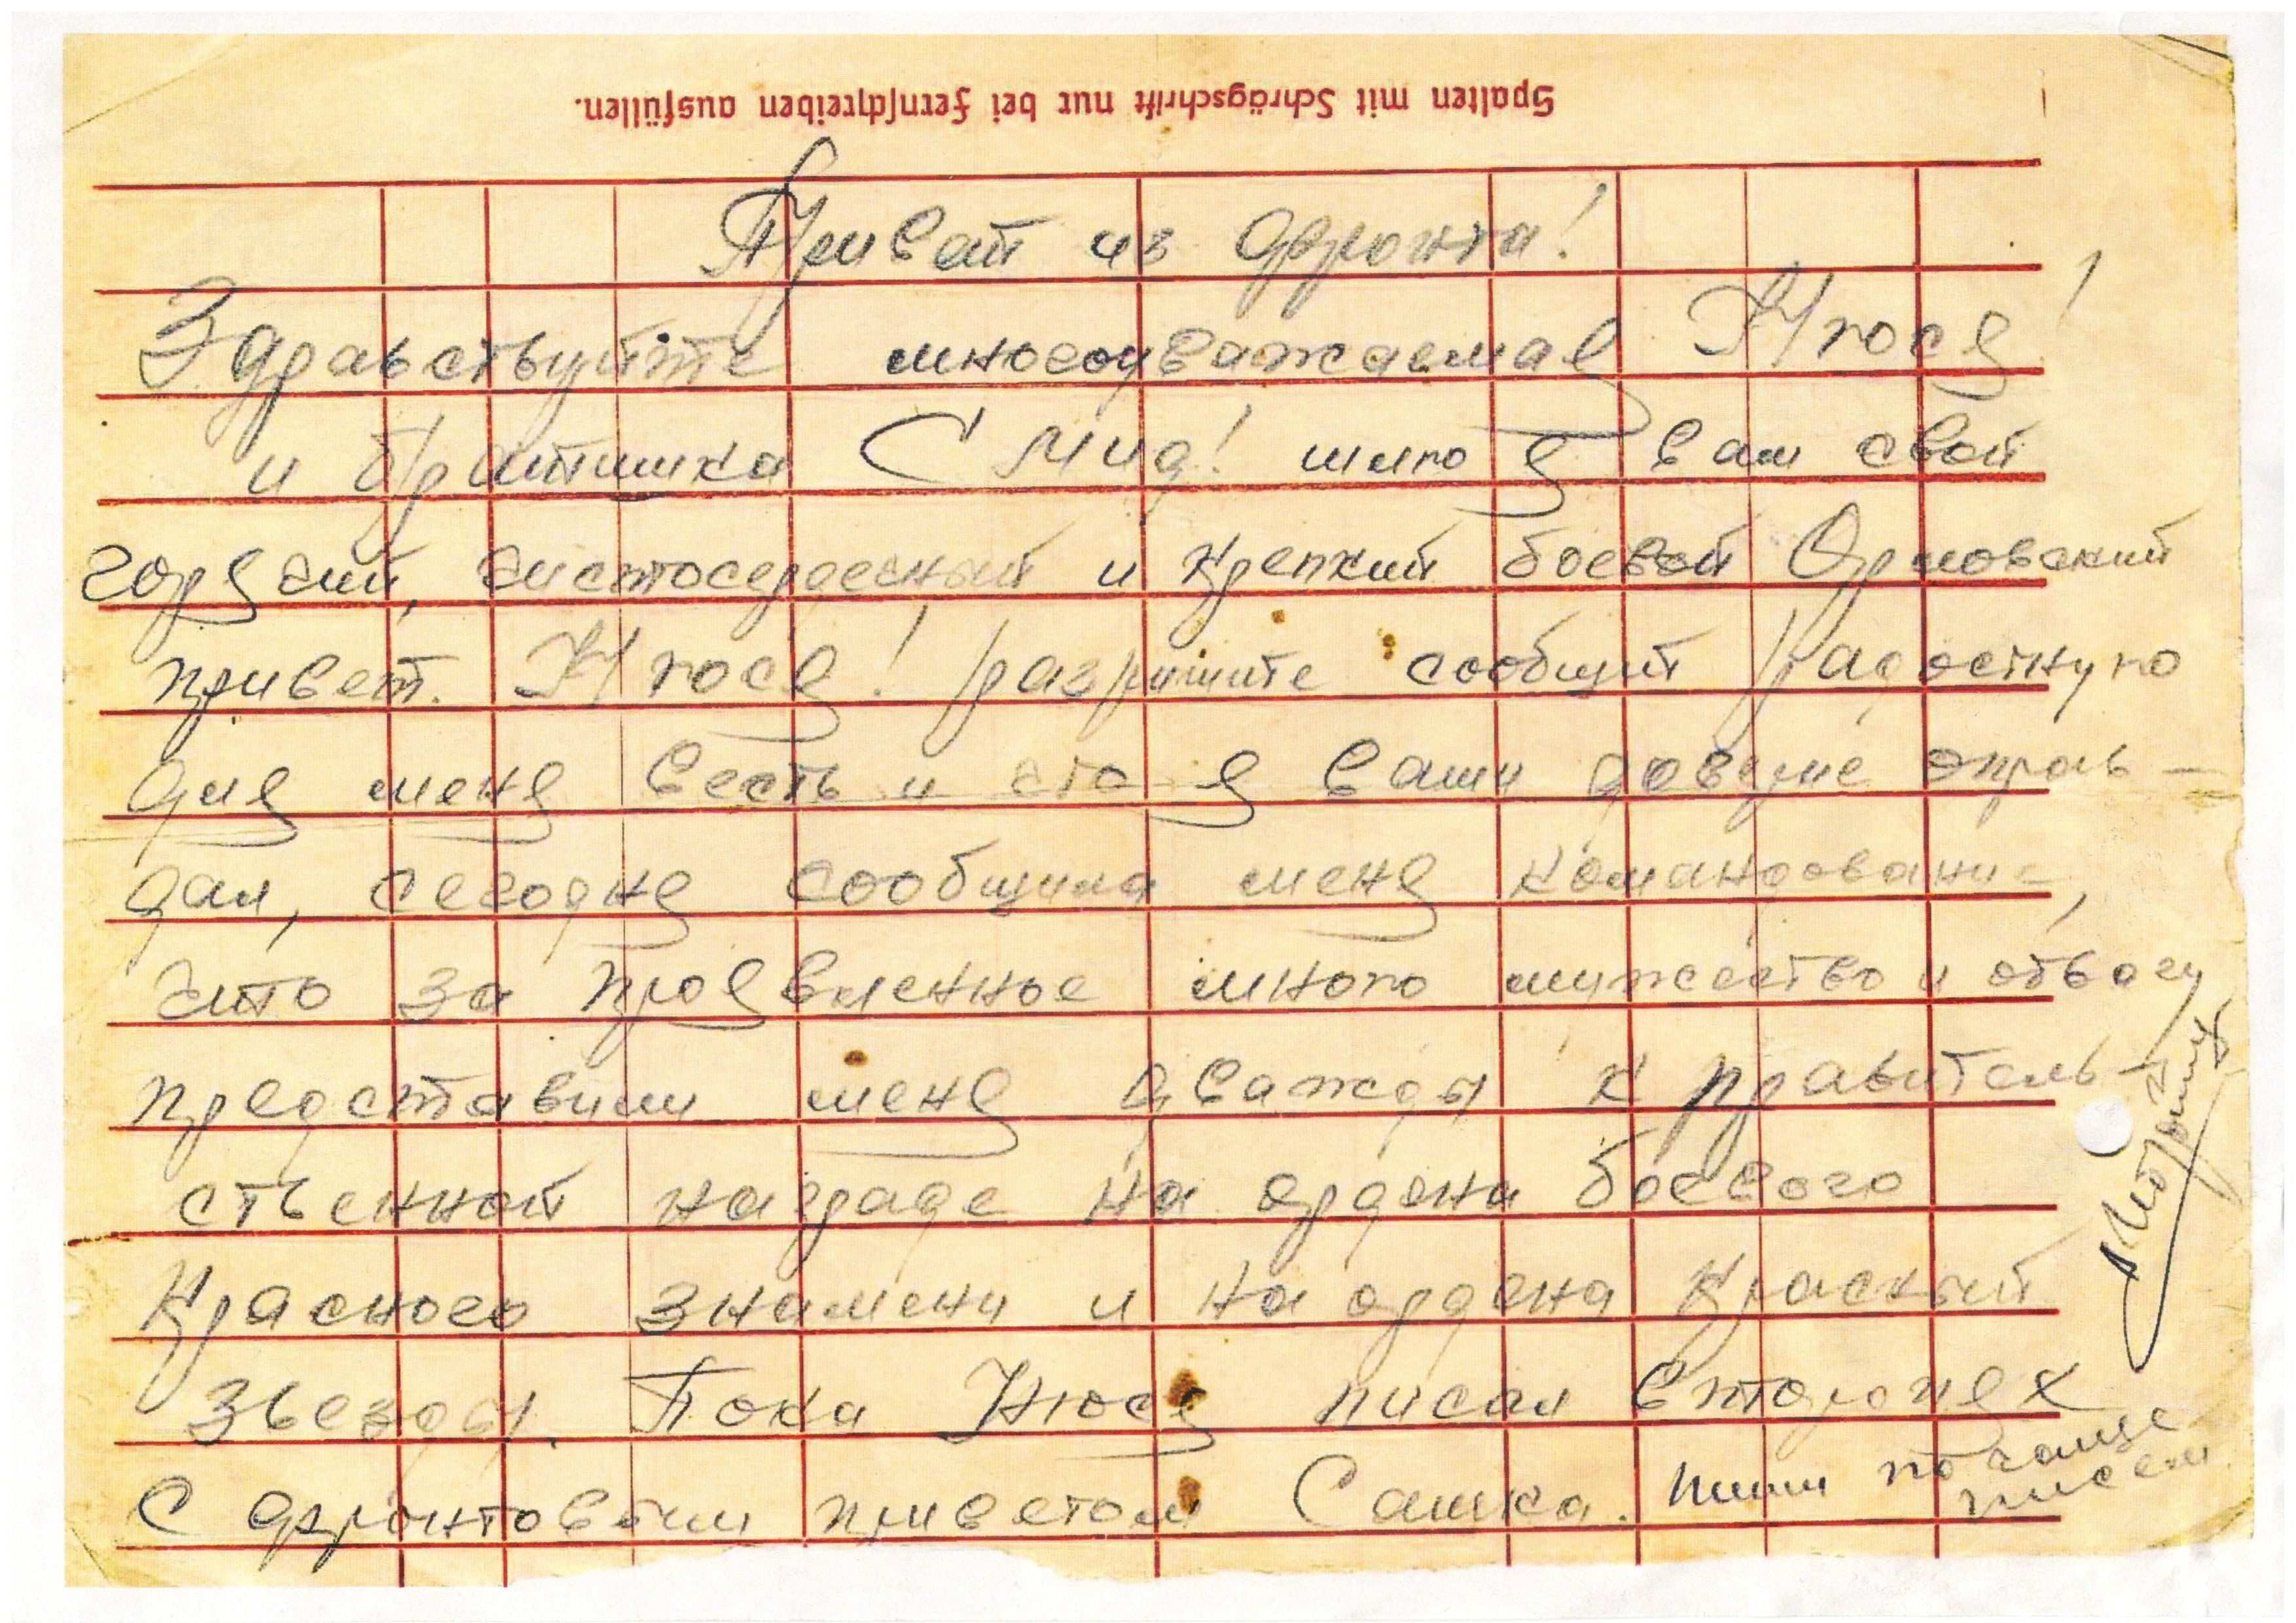 Spalten mit Schrägschrift nur bei Fernschreiben ausfüllen.
Привет из фронта!
Здравствуйте многоуважаемая Нюся!
и братишка Смид! шлю я вам свой
горячий, чистосердечный и крепкий боевой Орловский
привет. Нюся! разришите сообщит радостную
для меня весть и что я ваши доверие оправ-
дал, сегодня сообщила меня командование,
что за проявленное мною мужество и отвагу
представили меня дважды к правитель-
ственной награде на ордена боевого
Красного знамени и на ордена Красный
звезды. Пока Нюся писал второпях
С фронтовым приветом Сашка. пиши почаще
писем